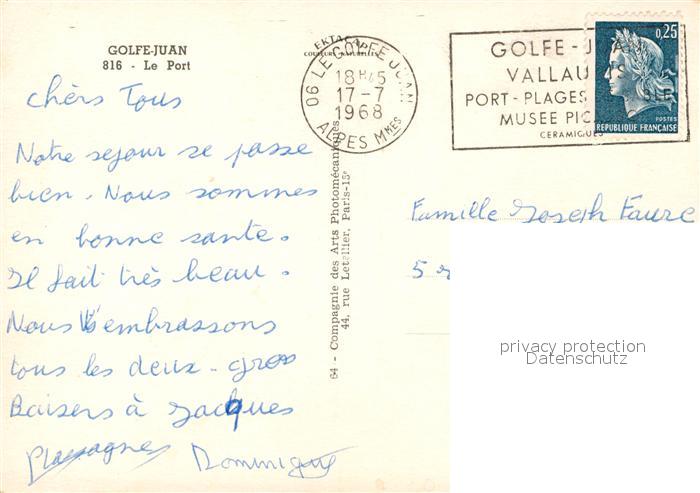 GOLFE-JUAN
816 - Le Port
EKTACAP
COULEURS NATURELLES
06 LE GOLFE JUAN
18H45
17-7
1968
ALPES MMES
GOLFE-J
VALLAU IS
PORT-PLAGES SOLE
MUSEE PIC
CERAMIQUES
0,25
POSTES
REPUBLIQUE FRANÇAISE
chers Tous
Notre sejour se passe
bien. Nous sommes
en bonne sante.
Il fait très beau.
Nous Vs embrassons
tous les deux. gros
Baisers à Jacques
Dominique
64 - Compagnie des Arts Photomécaniques
44, rue Letellier, Paris-15e
Famille Joseph Faure
5
privacy protection
Datenschutz